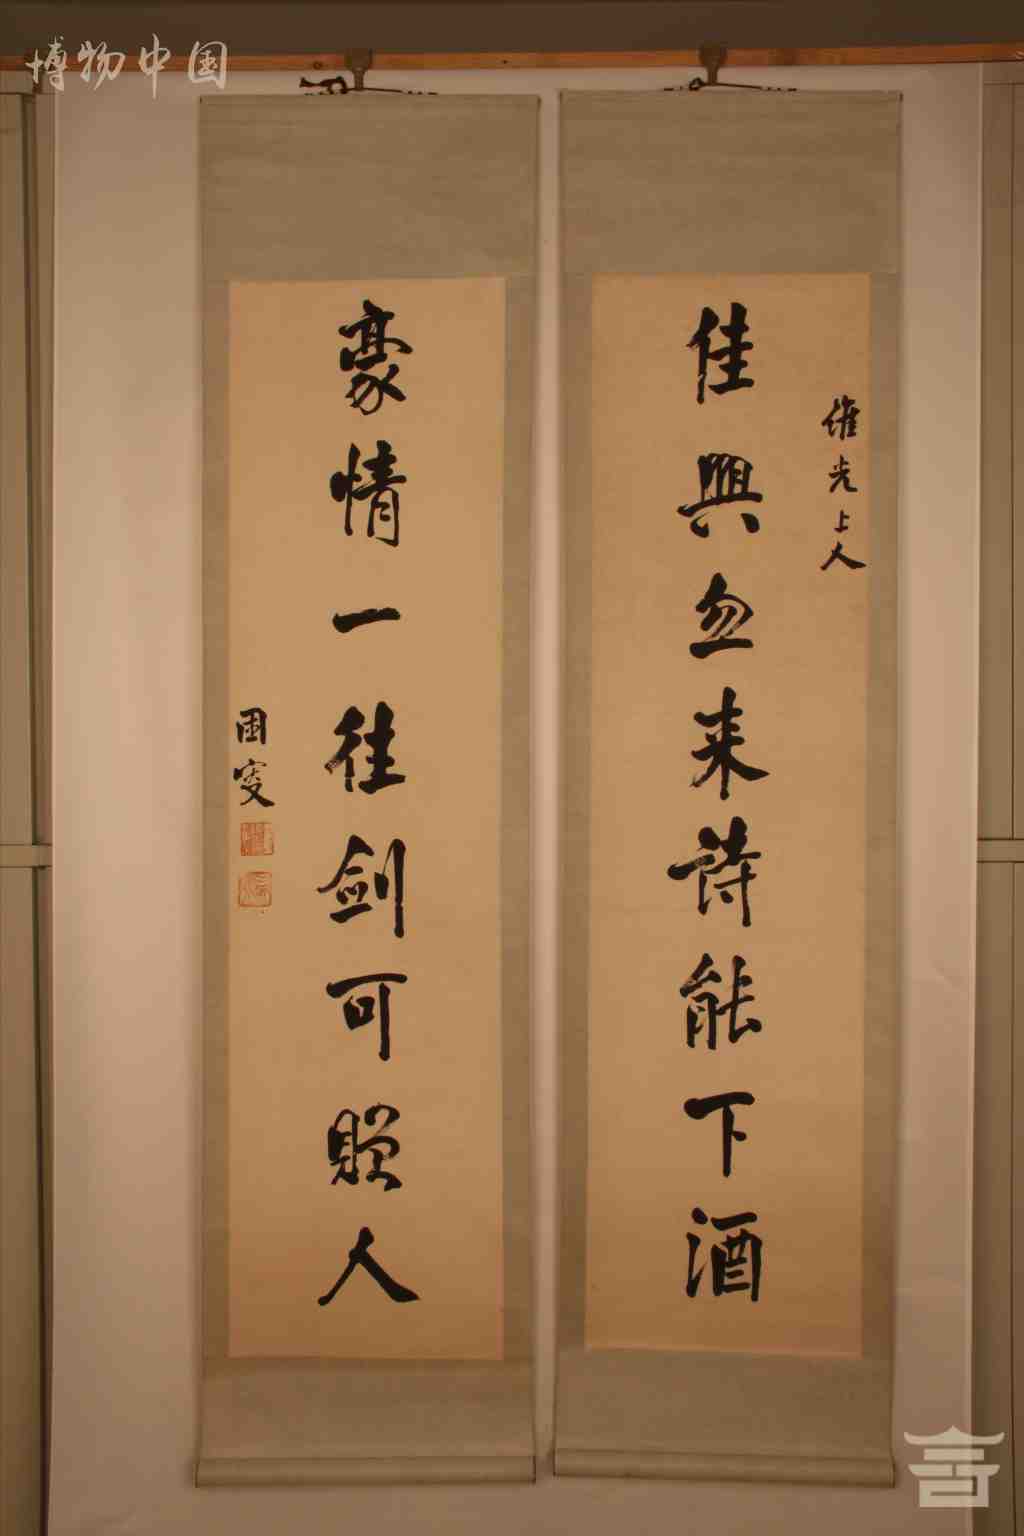 博物中国
維光上人
佳興忽来詩能下酒
豪情一往剑可贈人
田叟